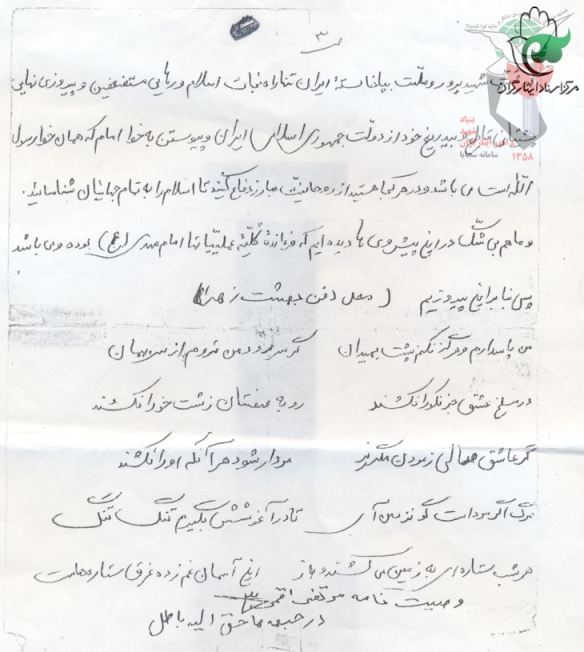 ص ۳
شهید پرور و ملت بپاخاستهٔ ایران تنها راه نجات اسلام و رهایی مستضعفین و پیروزی نهایی
پشتیبانی قاطع و بیدریغ خود از دولت جمهوری اسلامی ایران و پیوستن به خط امام که همان خط رسول
الله است می باشد و در هر کجا هستید از روحانیت مبارز دفاع کنید تا اسلام را به تمام جهانیان شناسانید.
و ما هم بی شک در این پیشروی ها دیده ایم که فرماندهٔ کلیهٔ عملیاتها امام مهدی (عج) بوده و می باشد
پس بنابراین پیروزیم (محل دفن بهشت زهرا)
من پاسدارم و هرگز نکنم پشت بمیدان گر سر برود من نروم از سر پیمان
در مسلخ عشق جز نکو را نکشند روبه صفتان زشت خو را نکشند
گر عاشق صادقی ز مردن مگریز مردار شود هر آنکه او را نکشند
مرگ اگر مرد است گو نزد من آی تا در آغوشش بگیرم تنگ تنگ
هر شب ستاره ای به زمین می کشند و باز این آسمان غم زده غرق ستاره هاست
وصیت نامه مرتضی
در جبهه ها حق الیه باطل
مرکز اسناد ایثارگران
بنیاد
شهید
و امور ایثارگران
سامانه سجایا
۱۳۵۸